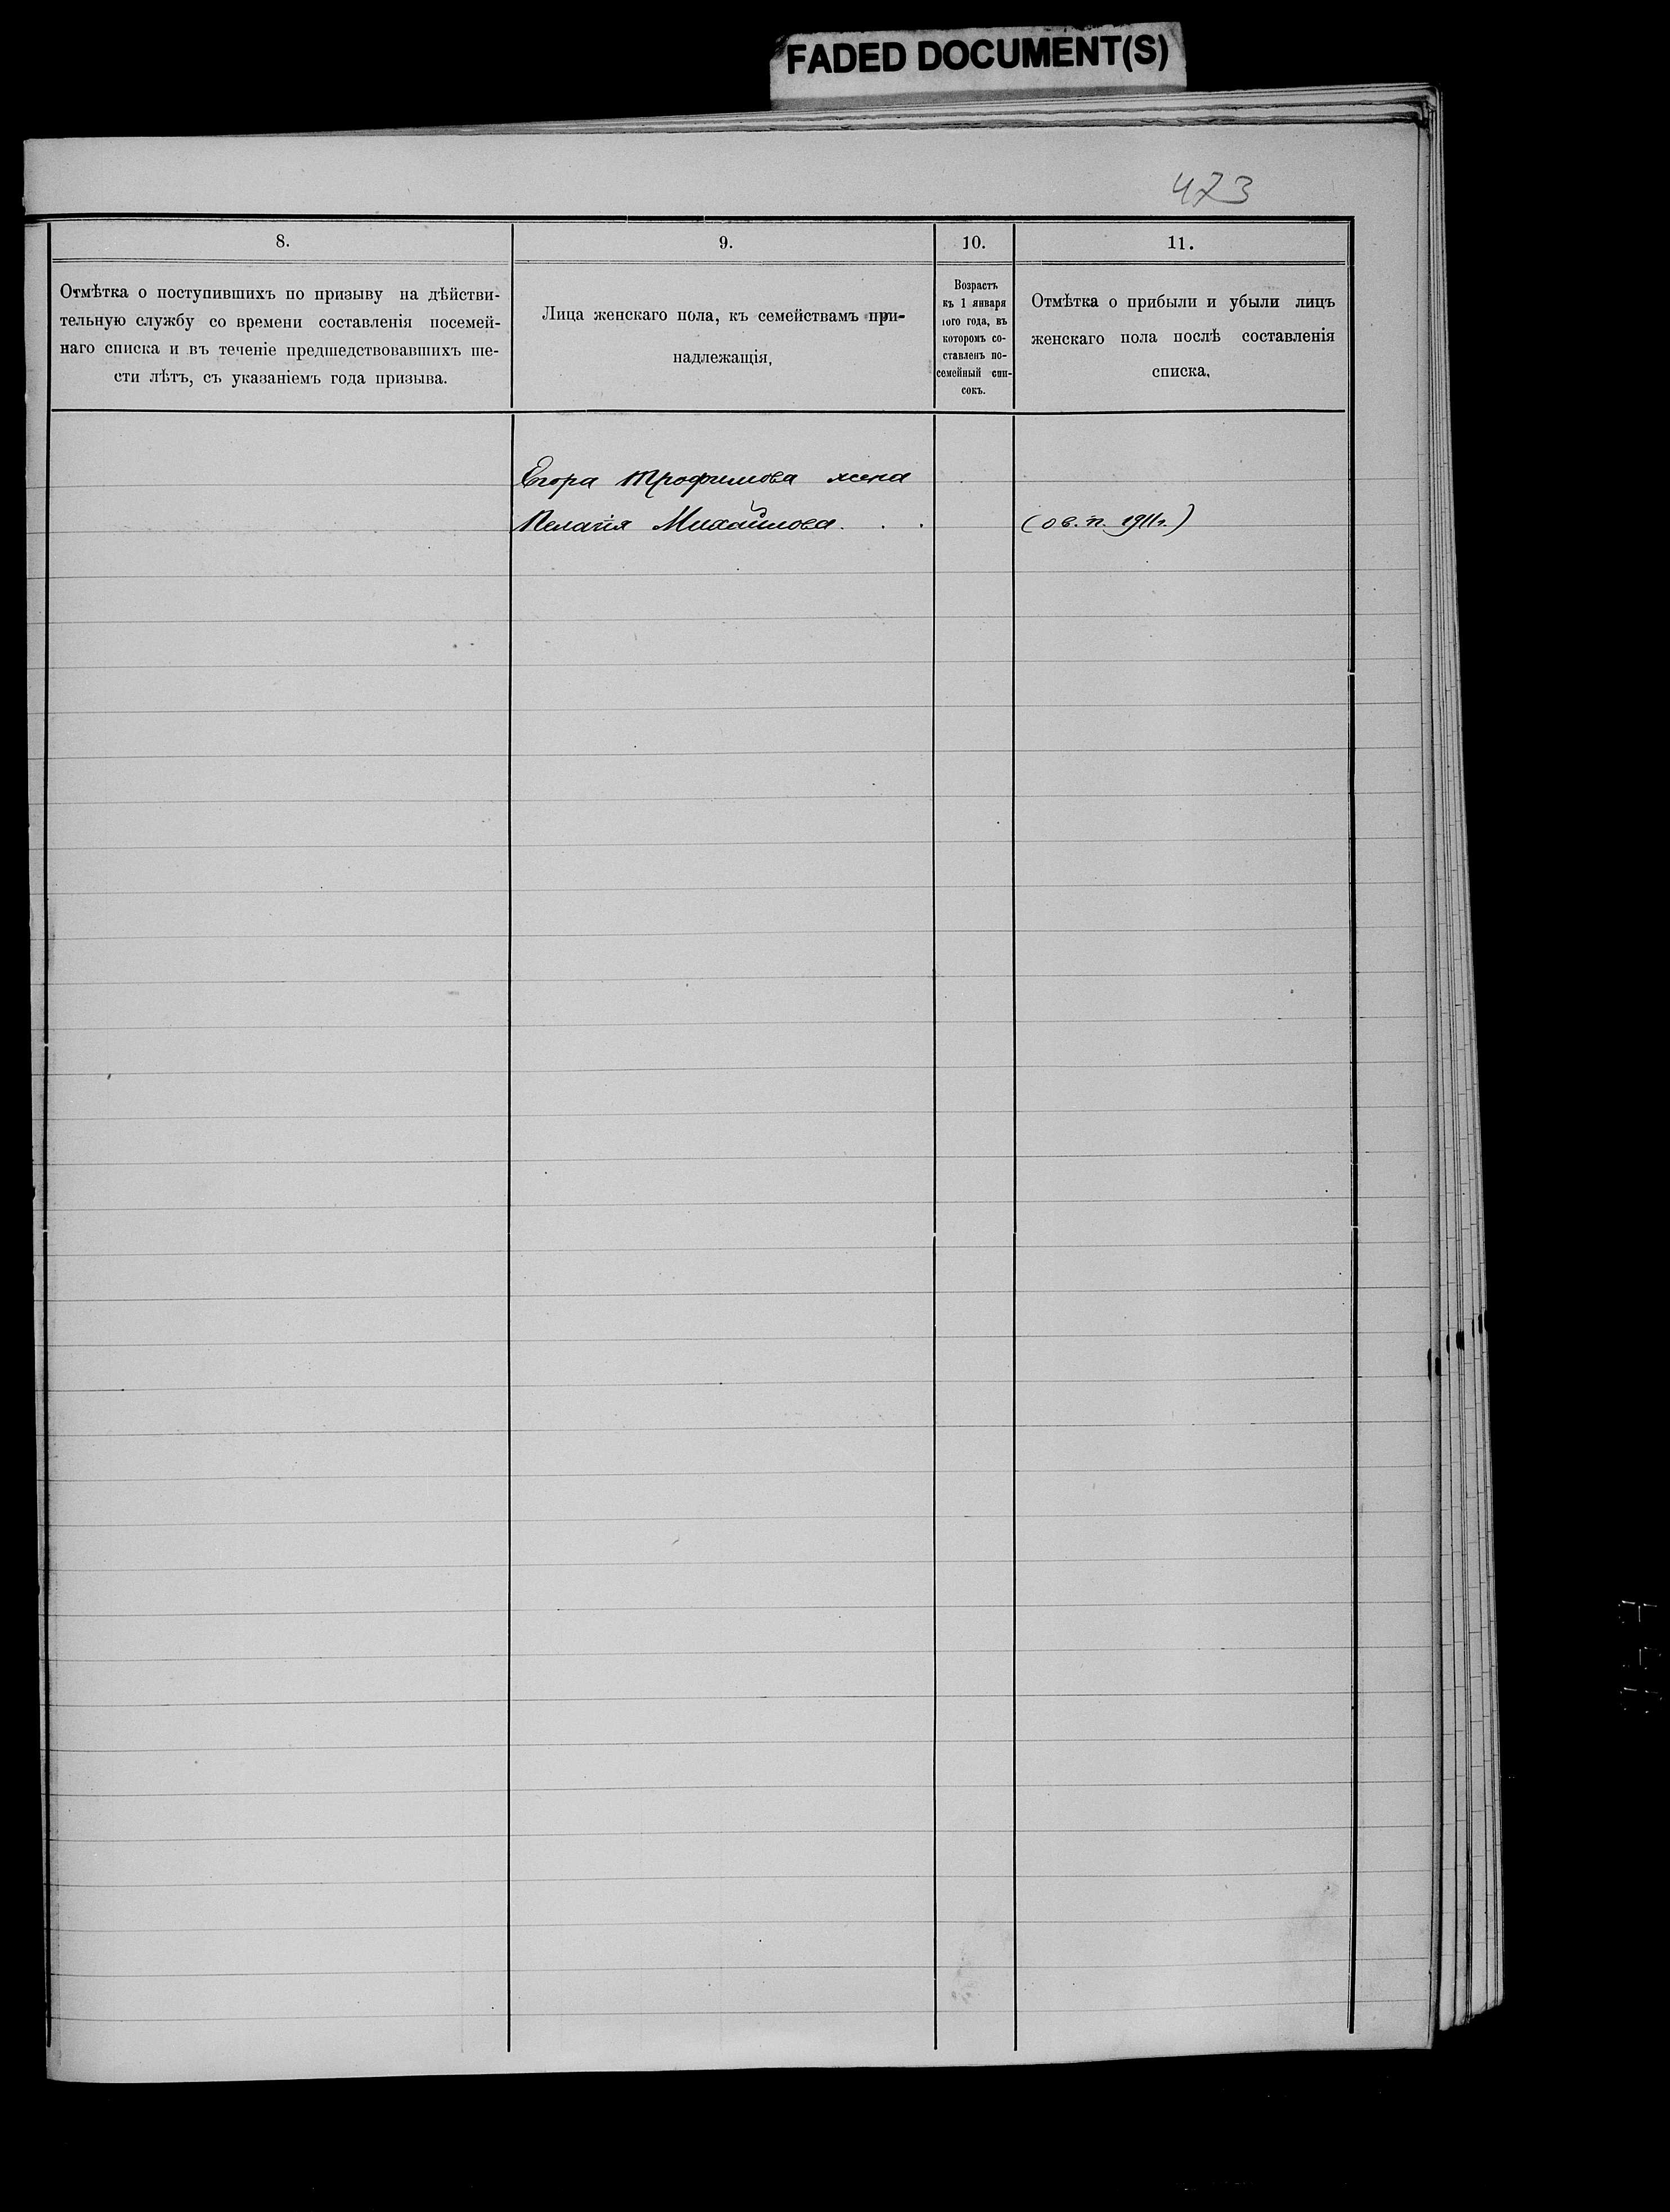 FADED DOCUMENT(S)
473
8.
9.
10.
11.
Отмѣтка о поступившихъ по призыву на дѣйстви-
тельную службу со времени составленія посемей-
наго списка и въ теченіе предшедствовавшихъ ше-
сти лѣтъ, съ указаніемъ года призыва.
Лица женскаго пола, къ семействамъ при-
надлежащія,
Возрастъ
къ 1 января
того года, въ
которомъ со-
ставленъ по-
семейный спи-
сокъ.
Отмѣтка о прибыли и убыли лицъ
женскаго пола послѣ составленія
списка,
Егора Трофимова жена
Пелагія Михайлова . . .
(ов. п. 1911г.)